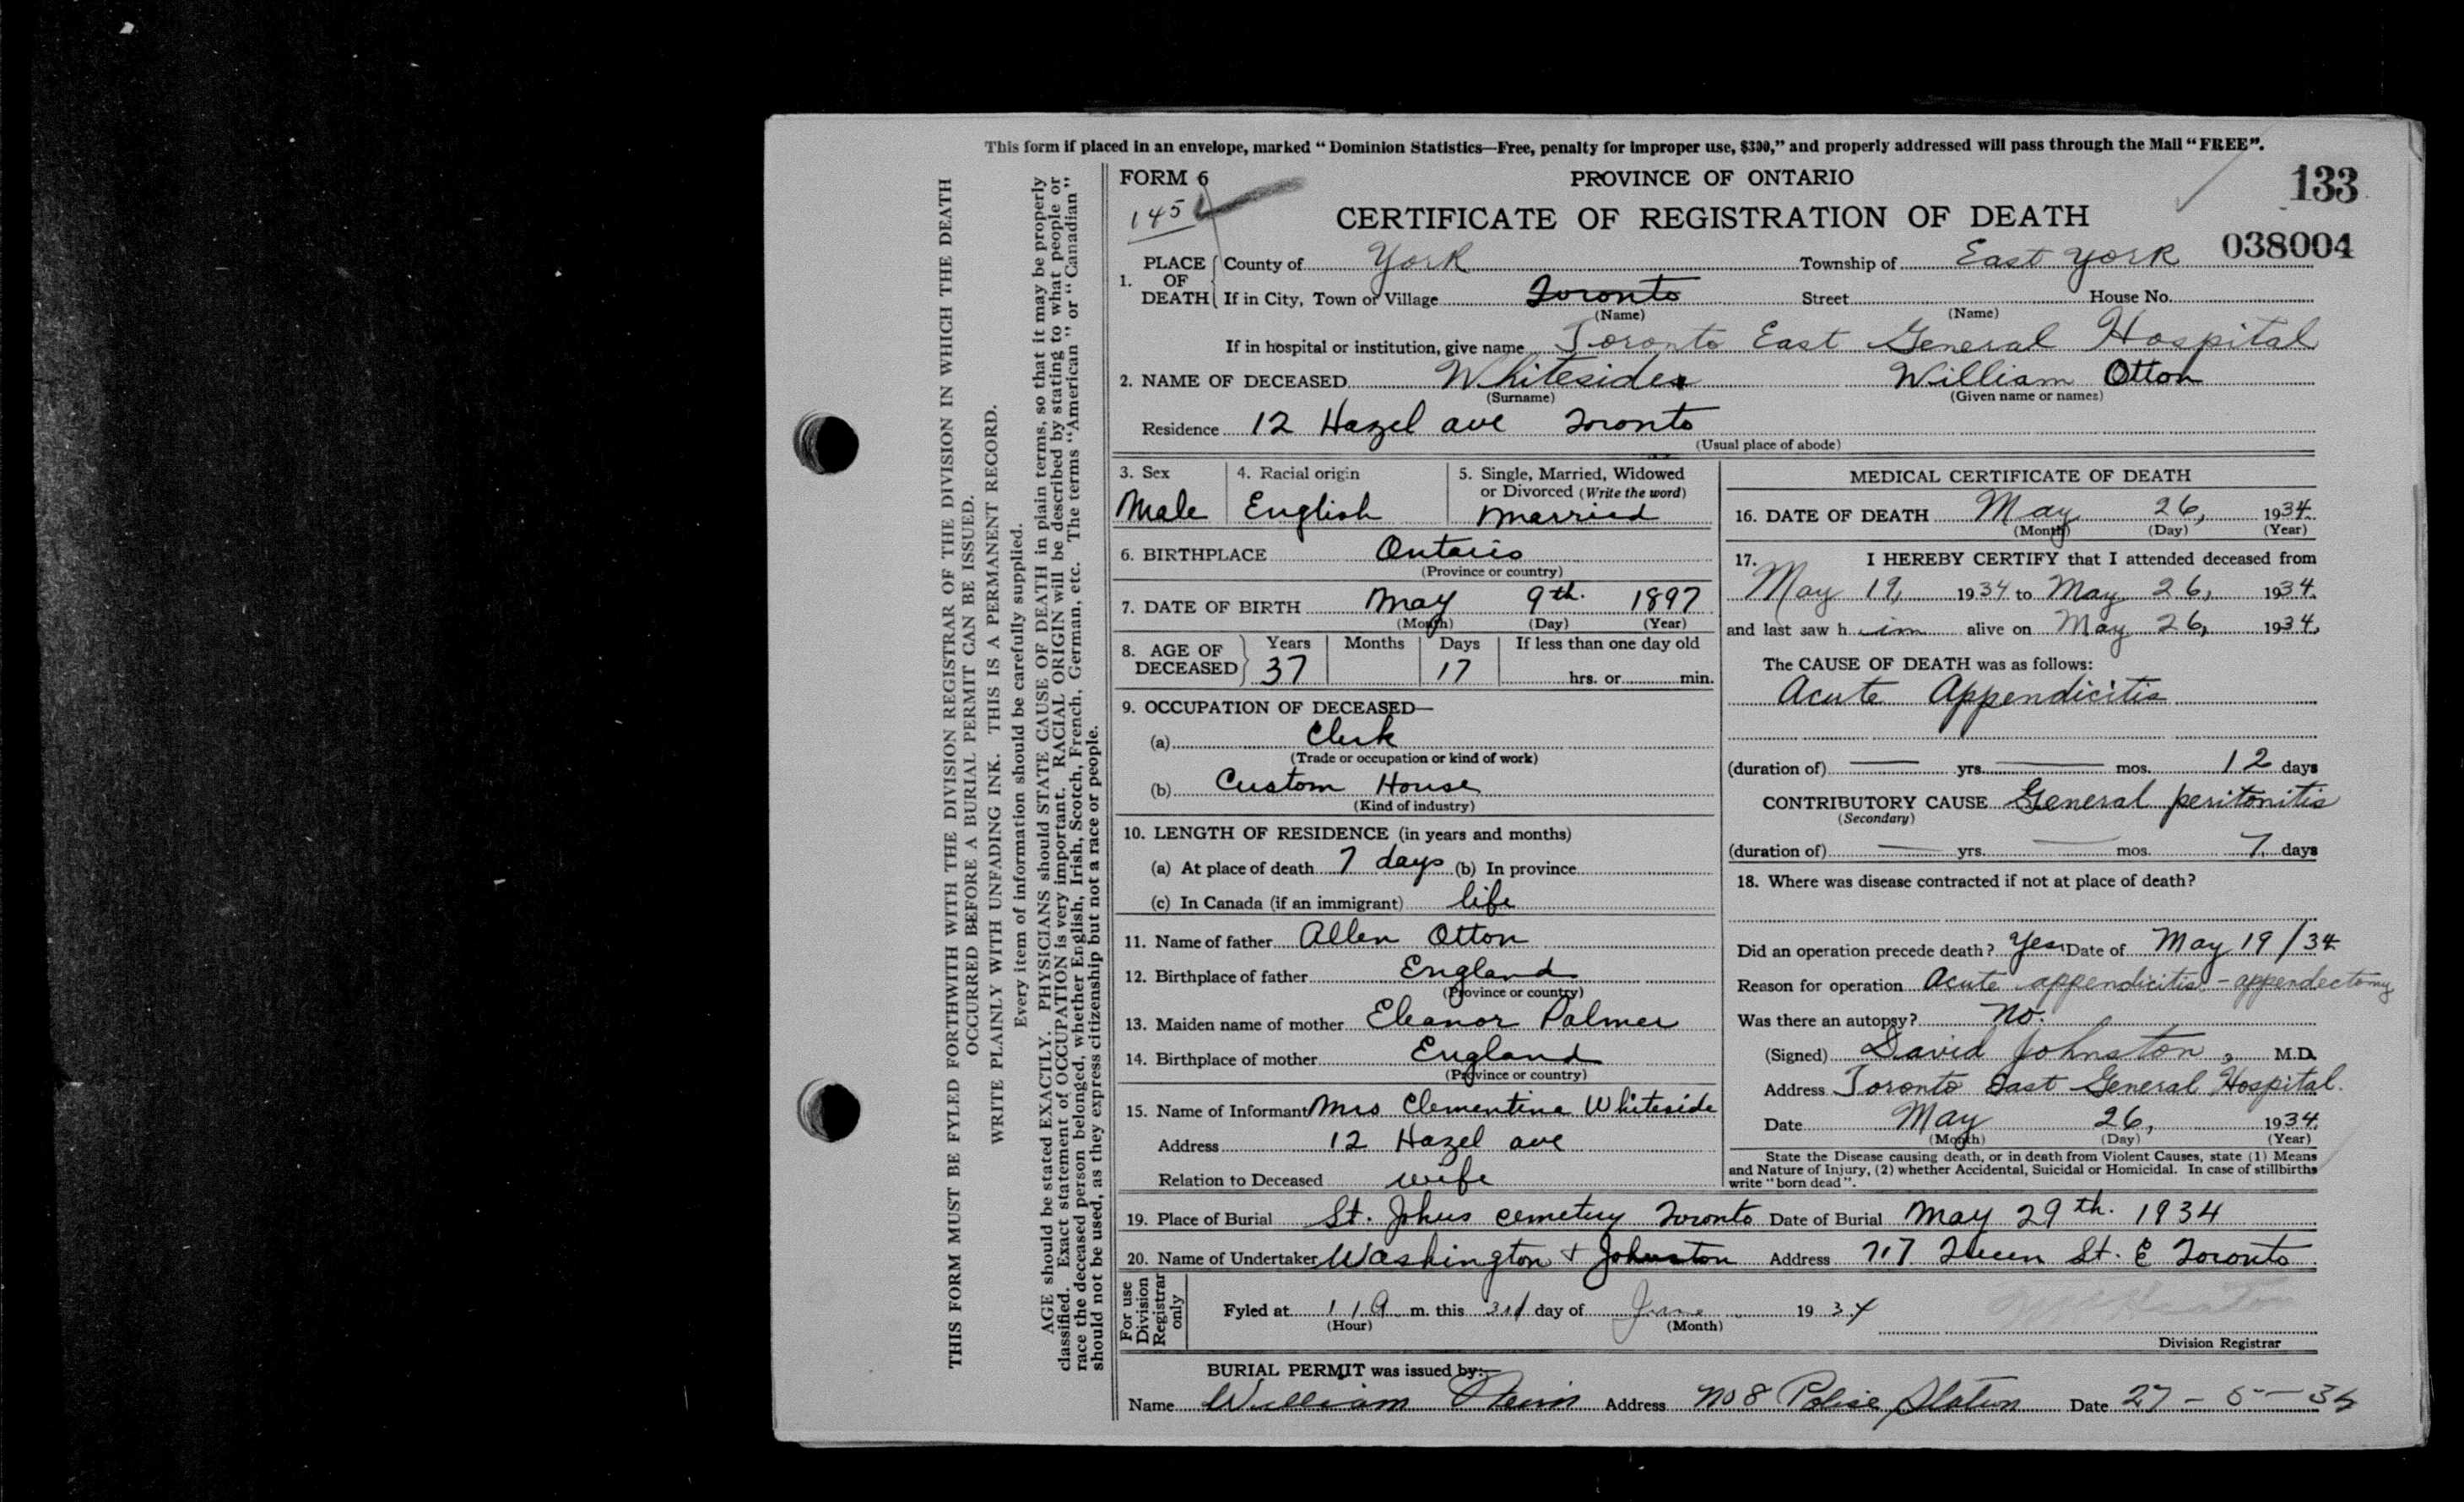 This form if placed in an envelope, marked "Dominion Statistics—Free, penalty for improper use, $300," and properly addressed will pass through the Mail "FREE".
FORM 6
PROVINCE OF ONTARIO
133
145
CERTIFICATE OF REGISTRATION OF DEATH
038004
1. PLACE OF DEATH
County of York Township of East York
If in City, Town or Village Toronto Street House No.
(Name) (Name)
If in hospital or institution, give name Toronto East General Hospital
2. NAME OF DECEASED Whiteside William Otton
(Surname) (Given name or names)
Residence 12 Hazel ave Toronto
(Usual place of abode)
3. Sex 4. Racial origin 5. Single, Married, Widowed
or Divorced (Write the word)
Male English Married
6. BIRTHPLACE Ontario
(Province or country)
7. DATE OF BIRTH May 9th. 1897
(Month) (Day) (Year)
8. AGE OF DECEASED Years Months Days If less than one day old
37 17 hrs. or min.
9. OCCUPATION OF DECEASED—
(a) Clerk
(Trade or occupation or kind of work)
(b) Custom House
(Kind of industry)
10. LENGTH OF RESIDENCE (in years and months)
(a) At place of death 7 days (b) In province
(c) In Canada (if an immigrant) life
11. Name of father Allen Otton
12. Birthplace of father England
(Province or country)
13. Maiden name of mother Eleanor Palmer
14. Birthplace of mother England
(Province or country)
15. Name of Informant Mrs Clementina Whiteside
Address 12 Hazel ave
Relation to Deceased wife
MEDICAL CERTIFICATE OF DEATH
16. DATE OF DEATH May 26, 1934
(Month) (Day) (Year)
17. I HEREBY CERTIFY that I attended deceased from
May 19, 1934 to May 26, 1934.
and last saw him alive on May 26, 1934,
The CAUSE OF DEATH was as follows:
Acute Appendicitis
(duration of) — yrs. — mos. 12 days
CONTRIBUTORY CAUSE General peritonitis
(Secondary)
(duration of) — yrs. — mos. 7 days
18. Where was disease contracted if not at place of death?
Did an operation precede death? Yes Date of May 19/34
Reason for operation Acute appendicitis - appendectomy
Was there an autopsy? No.
(Signed) David Johnston, M.D.
Address Toronto East General Hospital.
Date May 26, 1934
(Month) (Day) (Year)
State the Disease causing death, or in death from Violent Causes, state (1) Means
and Nature of Injury, (2) whether Accidental, Suicidal or Homicidal. In case of stillbirths
write "born dead".
19. Place of Burial St. Johns cemetery Toronto Date of Burial May 29th. 1934
20. Name of Undertaker Washington + Johnston Address 717 Queen St. E Toronto
For use Division Registrar only
Fyled at 11 a m. this 3rd day of June 1934
(Hour) (Month)
Division Registrar
BURIAL PERMIT was issued by:—
Name William Address No 8 Police Station Date 27 - 5 - 34
THIS FORM MUST BE FYLED FORTHWITH WITH THE DIVISION REGISTRAR OF THE DIVISION IN WHICH THE DEATH
OCCURRED BEFORE A BURIAL PERMIT CAN BE ISSUED.
WRITE PLAINLY WITH UNFADING INK. THIS IS A PERMANENT RECORD.
Every item of information should be carefully supplied.
AGE should be stated EXACTLY. PHYSICIANS should STATE CAUSE OF DEATH in plain terms, so that it may be properly
classified. Exact statement of OCCUPATION is very important. RACIAL ORIGIN will be described by stating to what people or
race the deceased person belonged, whether English, Irish, Scotch, French, German, etc. The terms "American" or "Canadian"
should not be used, as they express citizenship but not a race or people.